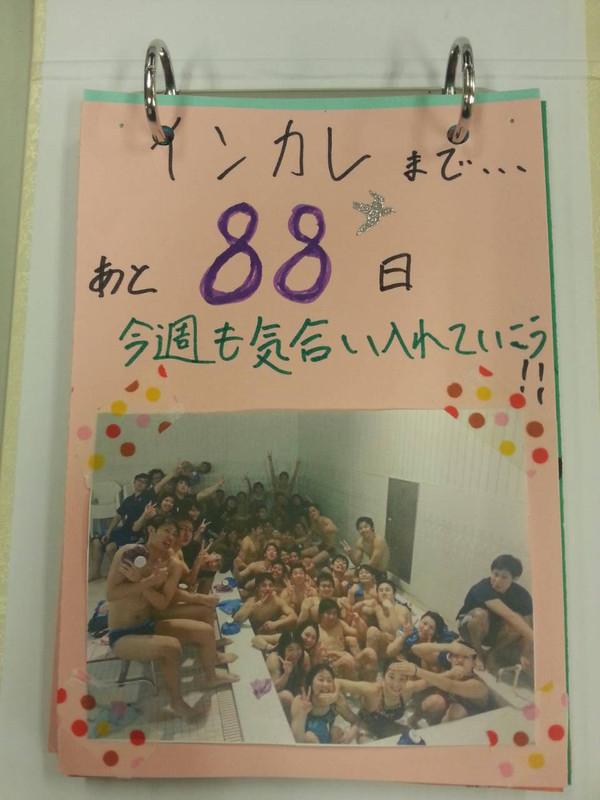 インカレまで...
あと 88 日
今週も気合い入れていこう
!!